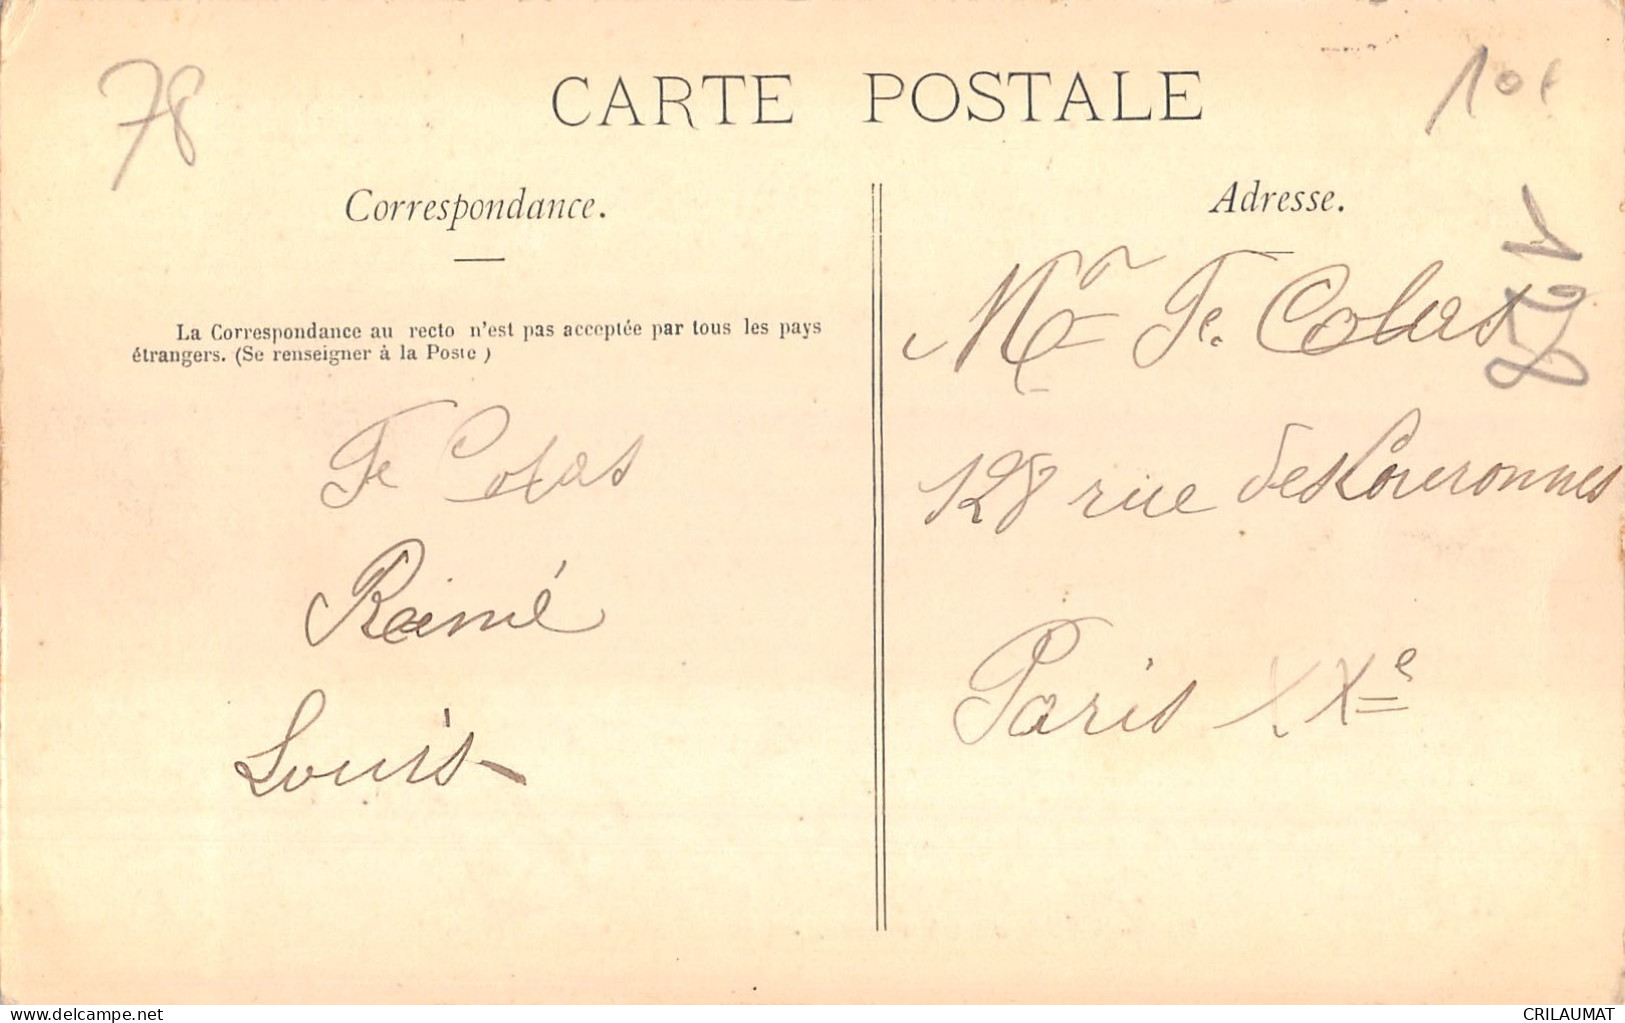 78
CARTE POSTALE
10€
Correspondance.
La Correspondance au recto n'est pas acceptée par tous les pays
étrangers. (Se renseigner à la Poste)
Fe Colas
Raimé
Louis
Adresse.
Mr Fe. Colas
128 rue des Couronnes
Paris XXe
www.delcampe.net
CRILAUMAT